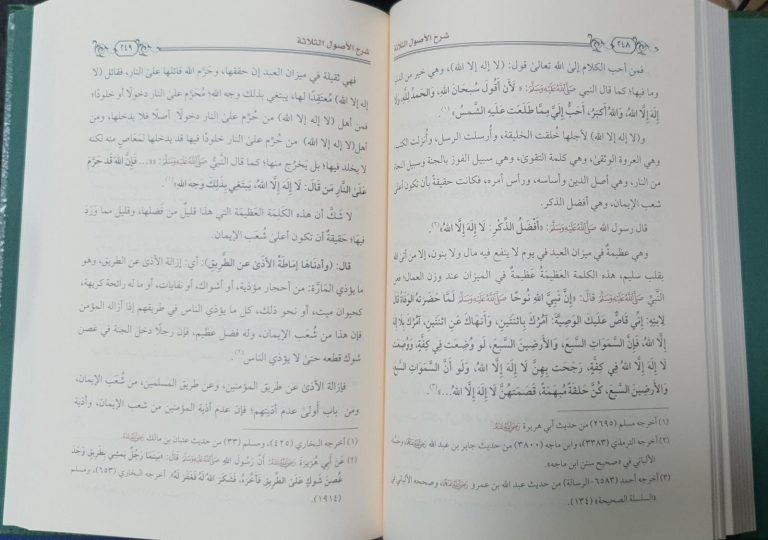 شرح الأصول الثلاثة
٢٤٨
فمن أحب الكلام إلى الله تعالى قول: (لا إله إلا الله)، وهي خير من الدنيا
وما فيها؛ كما قال النبي ﷺ: «لَأَن أَقُولَ سُبحَانَ اللهِ، وَالحَمدُ لِلَّهِ، وَلَا
إِلَهَ إِلَّا اللهُ، وَاللهُ أَكبَرُ، أَحَبُّ إِلَيَّ مِمَّا طَلَعَت عَلَيهِ الشَّمسُ»(١).
و(لا إله إلا الله) لأجلها خُلقت الخليقة، وأُرسلت الرسل، وأُنزلت الكتب
وهي العروة الوثقى، وهي كلمة التقوى، وهي سبيل الفوز بالجنة وسبيل النجاة
من النار، وهي أصل الدين وأساسه، ورأس أمره، فكانت حقيقةً بأن تكون أعلى
شعب الإيمان، وهي أفضل الذكر.
قال رسول الله ﷺ: «أَفضَلُ الذِّكرِ: لَا إِلَهَ إِلَّا اللهُ»(٢).
وهي عظيمةٌ في ميزان العبد في يوم لا ينفع فيه مال ولا بنون، إلا من أتى الله
بقلب سليم، هذه الكلمة العَظِيمَةُ عَظِيمَةٌ في الميزان عند وزن العمال؛
النَّبِيُّ ﷺ قَالَ: «إِنَّ نَبِيَّ اللهِ نُوحًا ﷺ لَمَّا حَضَرَتهُ الوَفَاةُ قَالَ
لِابنِهِ: إِنِّي قَاصٌّ عَلَيكَ الوَصِيَّةَ: آمُرُكَ بِاثنَتَينِ، وَأَنهَاكَ عَنِ اثنَتَينِ، آمُرُكَ بِلَا إِلَهَ
إِلَّا اللهُ، فَإِنَّ السَّمَوَاتِ السَّبعَ، وَالأَرَضِينَ السَّبعَ، لَو وُضِعَت فِي كِفَّةٍ، وَوُضِعَت
لَا إِلَهَ إِلَّا اللهُ فِي كِفَّةٍ، رَجَحَت بِهِنَّ لَا إِلَهَ إِلَّا اللهُ، وَلَو أَنَّ السَّمَوَاتِ السَّبعَ
وَالأَرَضِينَ السَّبعَ، كُنَّ حَلقَةً مُبهَمَةً، قَصَمَتهُنَّ لَا إِلَهَ إِلَّا اللهُ...»(٣).
(١) أخرجه مسلم (٢٦٩٥) من حديث أبي هريرة رضي الله عنه.
(٢) أخرجه الترمذي (٣٣٨٣)، وابن ماجه (٣٨٠٠) من حديث جابر بن عبد الله رضي الله عنه، وحسنه
الألباني في «صحيح سنن ابن ماجه».
(٣) أخرجه أحمد (٦٥٨٣-الرسالة) من حديث عبد الله بن عمرو رضي الله عنه، وصححه الألباني في
«السلسلة الصحيحة» (١٣٤).
شرح الأصول الثلاثة
٢٤٩
فهي ثقيلة في ميزان العبد إن حققها، وحَرَّم الله قائلها على النار، فقائل (لا
إله إلا الله) مُعتَقِدًا لها، يبتغي بذلك وجه الله؛ مُحَرَّم على النار دخولًا أو خلودًا؛
فمن أهل (لا إله إلا الله) من حُرِّم على النار دخولًا أصلًا فلا يدخلها، ومن
أهل (لا إله إلا الله) من حُرِّم على النار خلودًا فيها قد يدخلها لمَعَاصٍ منه لكنه
لا يخلد فيها؛ بل يَخرُج منها؛ كما قال النَّبيُّ ﷺ: «... فَإِنَّ اللهَ قَد حَرَّمَ
عَلَى النَّارِ مَن قَالَ: لَا إِلَهَ إِلَّا اللهُ، يَبتَغِي بِذَلِكَ وَجهَ اللهِ»(١).
لا شَكَّ أن هذه الكَلِمَة العَظِيمَة التي هذا قليلٌ من فَضلها، وقليل مما وَرَدَ
فيها؛ حَقيقةٌ بأن تكون أعلى شُعَب الإيمان.
قال: (وأدنَاهَا إمَاطَةُ الأذَى عن الطَّرِيقِ): أي: إزالة الأذى عن الطريق، وهو
ما يؤذي المَارَّة: من أحجار مؤذية، أو أشواك، أو نفايات، أو ما له رائحة كريهة،
كحيوان ميت، أو نحو ذلك، كل ما يؤذي الناس في طريقهم إذا أزاله المؤمن
فإن هذا من شُعب الإيمان، وله فضل عظيم، فإن رجلًا دخل الجنة في غصن
شوك قطعه حتى لا يؤذي الناس(٢).
فإزالة الأذى عن طريق المؤمنين، وعن طريق المسلمين، من شُعَب الإيمان،
ومن باب أَولَى عدم أذيتهم؛ فإن عدم أذية المؤمنين من شعب الإيمان، وأذية
(١) أخرجه البخاري (٤٢٥)، ومسلم (٣٣) من حديث عتبان بن مالك رضي الله عنه.
(٢) عَن أَبِي هُرَيرَةَ رضي الله عنه: أَنَّ رَسُولَ اللهِ ﷺ قَالَ: «بَينَمَا رَجُلٌ يَمشِي بِطَرِيقٍ وَجَدَ
غُصنَ شَوكٍ عَلَى الطَّرِيقِ فَأَخَّرَهُ، فَشَكَرَ اللهُ لَهُ فَغَفَرَ لَهُ». أخرجه البخاري (٦٥٣)، ومسلم
(١٩١٤).